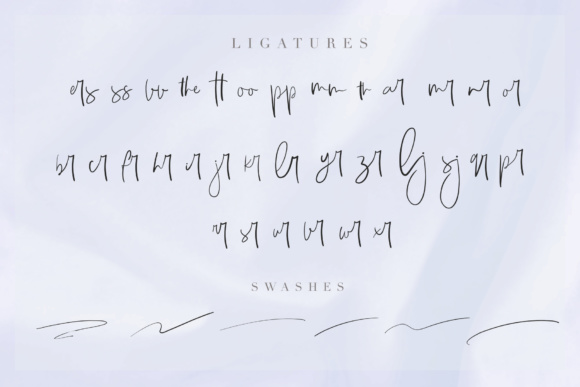 LIGATURES
ers ss the tt oo pp mm th ar mr nr or
br cr fr hr ir jr kr lr yr zr lj sj qr pr
rr sr ur vr wr xr
SWASHES